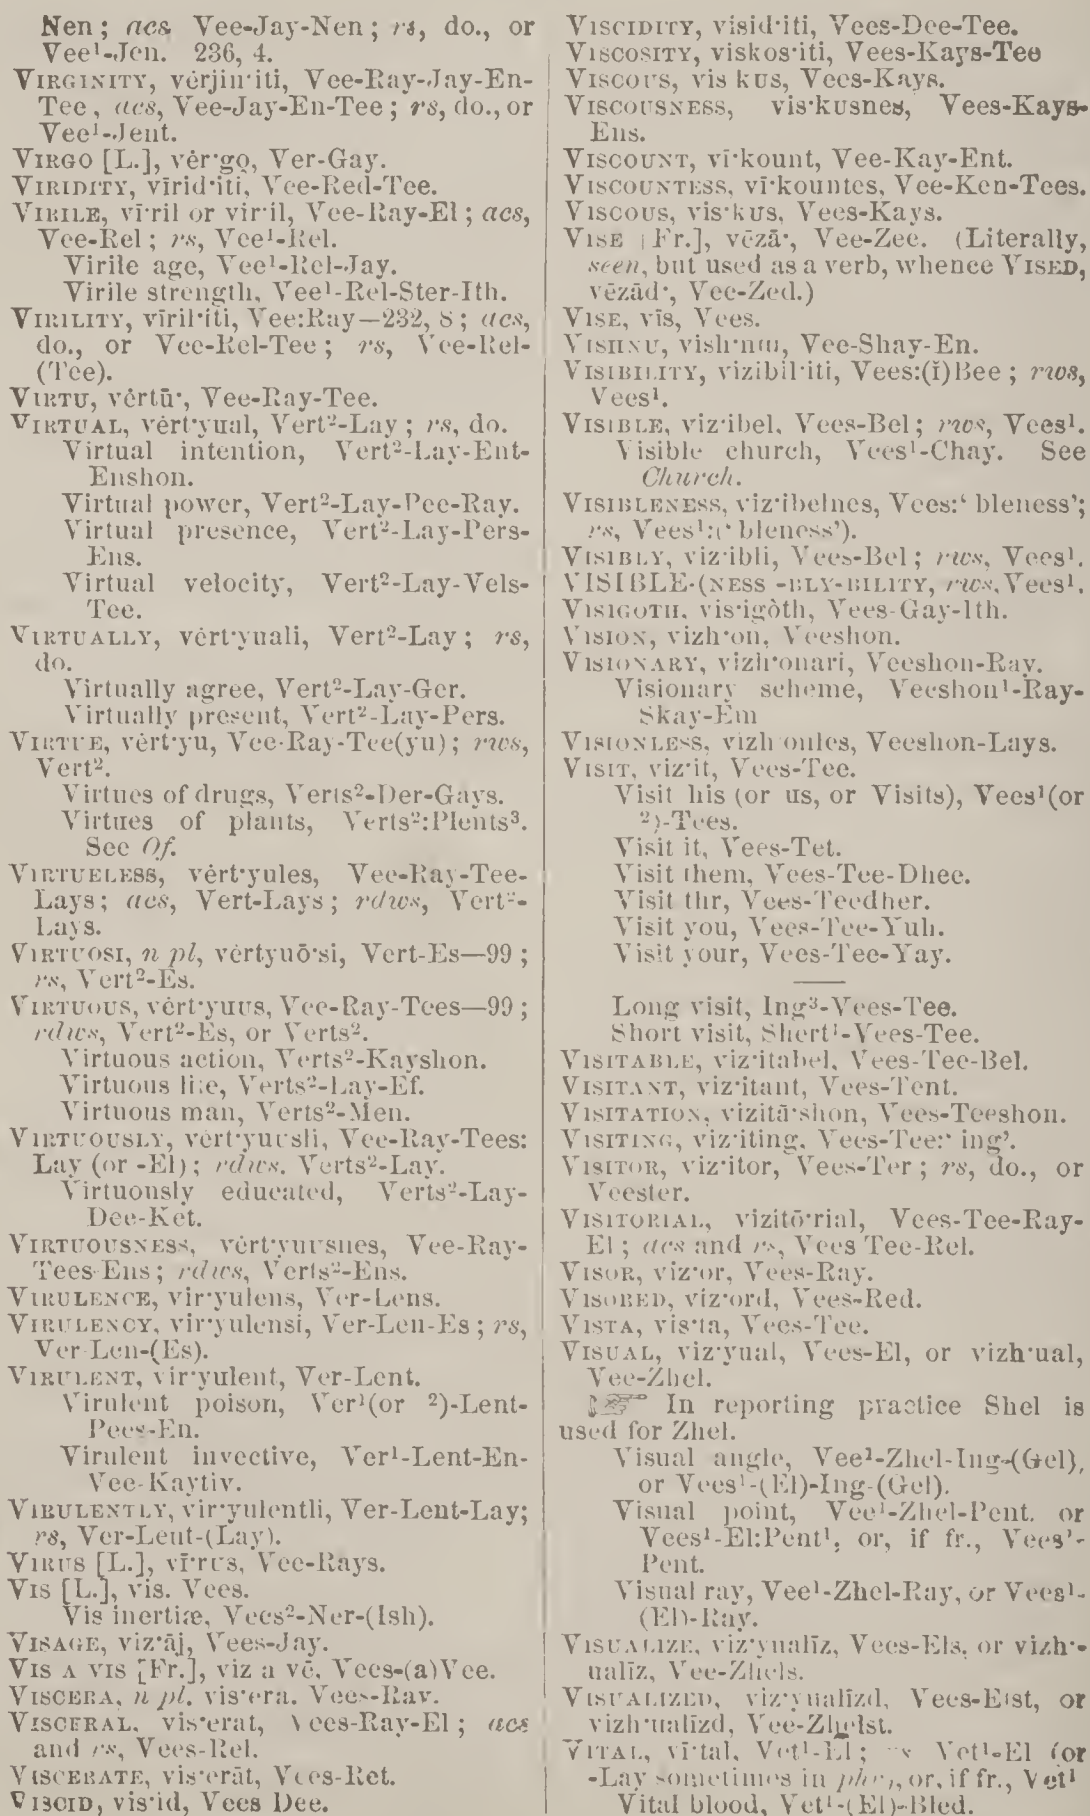 Nen; acs Vee-Jay-Nen; rs, do., or
Vee¹-Jen. 236, 4.
VIRGINITY, vėrjin·iti, Vee-Ray-Jay-En-
Tee, acs, Vee-Jay-En-Tee; rs, do., or
Vee¹-Jent.
VIRGO [L.], vėr·go, Ver-Gay.
VIRIDITY, vīrid·iti, Vee-Red-Tee.
VIRILE, vī·ril or vir·il, Vee-Ray-El; acs,
Vee-Rel; rs, Vee¹-Rel.
Virile age, Vee¹-Rel-Jay.
Virile strength, Vee¹-Rel-Ster-Ith.
VIRILITY, vīril·iti, Vee:Ray—232, 8; acs,
do., or Vee-Rel-Tee; rs, Vee-Rel-
(Tee).
VIRTU, vėrtū·, Vee-Ray-Tee.
VIRTUAL, vėrt·yual, Vert²-Lay; rs, do.
Virtual intention, Vert²-Lay-Ent-
Enshon.
Virtual power, Vert²-Lay-Pee-Ray.
Virtual presence, Vert²-Lay-Pers-
Ens.
Virtual velocity, Vert²-Lay-Vels-
Tee.
VIRTUALLY, vėrt·yuali, Vert²-Lay; rs,
do.
Virtually agree, Vert²-Lay-Ger.
Virtually present, Vert²-Lay-Pers.
VIRTUE, vėrt·yu, Vee-Ray-Tee(yu); rws,
Vert².
Virtues of drugs, Verts²-Der-Gays.
Virtues of plants, Verts²:Plents³.
See Of.
VIRTUELESS, vėrt·yules, Vee-Ray-Tee-
Lays; acs, Vert-Lays; rdws, Vert²-
Lays.
VIRTUOSI, n pl, vėrtyuō·si, Vert-Es—99;
rs, Vert²-Es.
VIRTUOUS, vėrt·yuus, Vee-Ray-Tees—99;
rdws, Vert²-Es, or Verts².
Virtuous action, Verts²-Kayshon.
Virtuous life, Verts²-Lay-Ef.
Virtuous man, Verts²-Men.
VIRTUOUSLY, vėrt·yuusli, Vee-Ray-Tees:
Lay (or -El); rdws. Verts²-Lay.
Virtuously educated, Verts²-Lay-
Dee-Ket.
VIRTUOUSNESS, vėrt·yuusnes, Vee-Ray-
Tees-Ens; rdws, Verts²-Ens.
VIRULENCE, vir·yulens, Ver-Lens.
VIRULENCY, vir·yulensi, Ver-Len-Es; rs,
Ver-Len-(Es).
VIRULENT, vir·yulent, Ver-Lent.
Virulent poison, Ver¹(or ²)-Lent-
Pees-En.
Virulent invective, Ver¹-Lent-En-
Vee-Kaytiv.
VIRULENTLY, vir·yulentli, Ver-Lent-Lay;
rs, Ver-Lent-(Lay).
VIRUS [L.], vī·rus, Vee-Rays.
VIS [L.], vis. Vees.
Vis inertiæ, Vees²-Ner-(Ish).
VISAGE, viz·āj, Vees-Jay.
VIS A VIS [Fr.], viz a vē, Vees-(a)Vee.
VISCERA, n pl. vis·era. Vees-Ray.
VISCERAL, vis·erat, Vees-Ray-El; acs
and rs, Vees-Rel.
VISCERATE, vis·erāt, Vees-Ret.
VISCID, vis·id, Vees Dee.
VISCIDITY, visid·iti, Vees-Dee-Tee.
VISCOSITY, viskos·iti, Vees-Kays-Tee
VISCOUS, vis kus, Vees-Kays.
VISCOUSNESS, vis·kusnes, Vees-Kays-
Ens.
VISCOUNT, vī·kount, Vee-Kay-Ent.
VISCOUNTESS, vī·kountes, Vee-Ken-Tees.
VISCOUS, vis·kus, Vees-Kays.
VISE [Fr.], vēzā·, Vee-Zee. (Literally,
seen, but used as a verb, whence VISED,
vēzād·, Vee-Zed.)
VISE, vīs, Vees.
VISHNU, vish·nu, Vee-Shay-En.
VISIBILITY, vizibil·iti, Vees:(ĭ)Bee; rws,
Vees¹.
VISIBLE, viz·ibel, Vees-Bel; rws, Vees¹.
Visible church, Vees¹-Chay. See
Church.
VISIBLENESS, viz·ibelnes, Vees:‘ bleness’;
rs, Vees¹:(‘ bleness’).
VISIBLY, viz·ibli, Vees-Bel; rws, Vees¹.
VISIBLE-(NESS -BLY-BILITY, rws, Vees¹.
VISIGOTH, vis·igòth, Vees-Gay-Ith.
VISION, vizh·on, Veeshon.
VISIONARY, vizh·onari, Veeshon-Ray.
Visionary scheme, Veeshon¹-Ray-
Skay-Em
VISIONLESS, vizh onles, Veeshon-Lays.
VISIT, viz·it, Vees-Tee.
Visit his (or us, or Visits), Vees¹(or
²)-Tees.
Visit it, Vees-Tet.
Visit them, Vees-Tee-Dhee.
Visit thr, Vees-Teedher.
Visit you, Vees-Tee-Yuh.
Visit your, Vees-Tee-Yay.
Long visit, Ing³-Vees-Tee.
Short visit, Shert¹-Vees-Tee.
VISITABLE, viz·itabel, Vees-Tee-Bel.
VISITANT, viz·itant, Vees-Tent.
VISITATION, vizitā·shon, Vees-Teeshon.
VISITING, viz·iting, Vees-Tee:‘ ing’.
VISITOR, viz·itor, Vees-Ter; rs, do., or
Veester.
VISITORIAL, vizitō·rial, Vees-Tee-Ray-
El; acs and rs, Vees Tee-Rel.
VISOR, viz·or, Vees-Ray.
VISORED, viz·ord, Vees-Red.
VISTA, vis·ta, Vees-Tee.
VISUAL, viz·yual, Vees-El, or vizh·ual,
Vee-Zhel.
☞ In reporting practice Shel is
used for Zhel.
Visual angle, Vee¹-Zhel-Ing-(Gel),
or Vees¹-(El)-Ing-(Gel).
Visual point, Vee¹-Zhel-Pent. or
Vees¹-El:Pent¹, or, if fr., Vees¹-
Pent.
Visual ray, Vee¹-Zhel-Ray, or Vees¹-
(El)-Ray.
VISUALIZE, viz·yualīz, Vees-Els, or vizh·-
ualīz, Vee-Zhels.
VISUALIZED, viz·yualīzd, Vees-Elst, or
vizh·ualīzd, Vee-Zhelst.
VITAL, vī·tal, Vet¹-El; rs Vet¹-El (or
-Lay sometimes in phr), or, if fr., Vet¹
Vital blood, Vet¹-(El)-Bled.